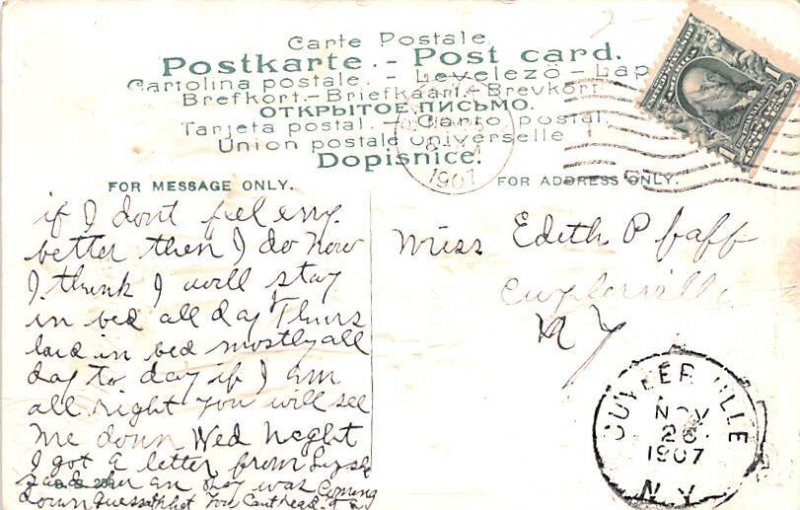 Carte Postale.
Postkarte. - Post card.
Cartolina postale. - Levelező - Lap
Brefkort. - Briefkaart. - Brevkort.
ОТКРЫТОЕ ПИСЬМО.
Tarjeta postal. - Carto postal.
Union postale universelle
Dopisnice.
1907
FOR MESSAGE ONLY.
FOR ADDRESS ONLY.
if I dont feel eny
better then I do now
I think I will stay
in bed all day Thurs
laid in bed mostly all
day to day if I am
all right you will see
me down Wed Neght
I got a letter from
an they was Coming
down guess that You Cant read
Miss Edith Pfaff
Cuylerville
N Y
CUYLERVILLE
NOV
26
1907
N.Y.